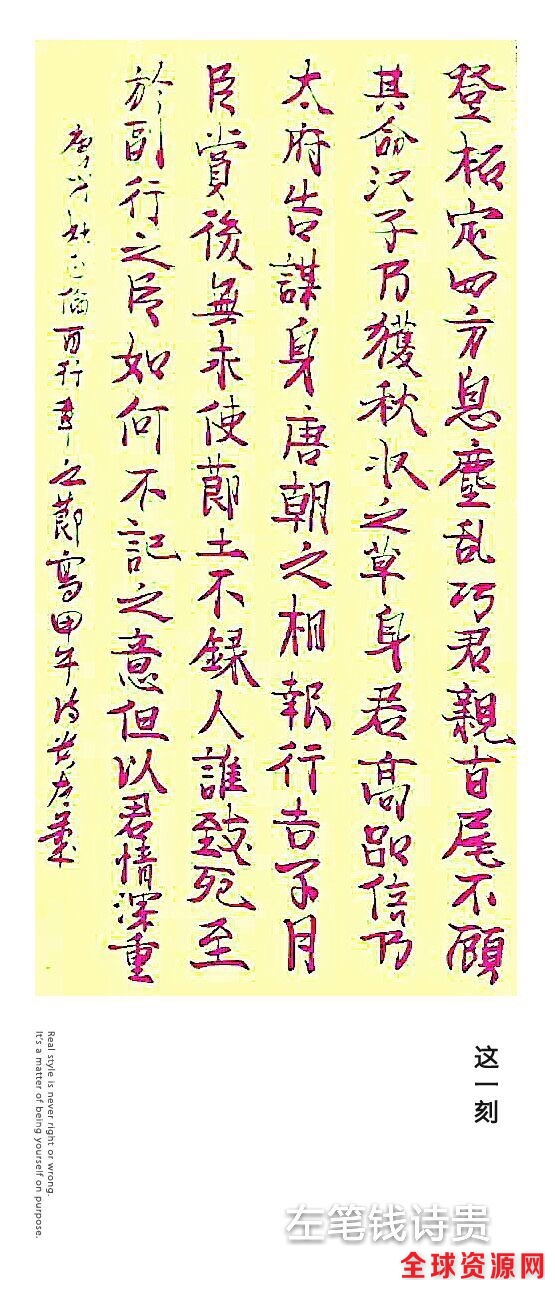 登柘定四方息塵乱巧君親百尾不顾
其命況子乃獲秋收之草身君高品信乃
太府告謀身唐朝之相報行吉不月
臣賞後無求使節土不録人誰致死至
於副行之臣如何不記之意但以君情深重
百行章之節寫甲午
这一刻
Real style is never right or wrong.
It's a matter of being yourself on purpose.
左笔钱诗贵
全球资源网